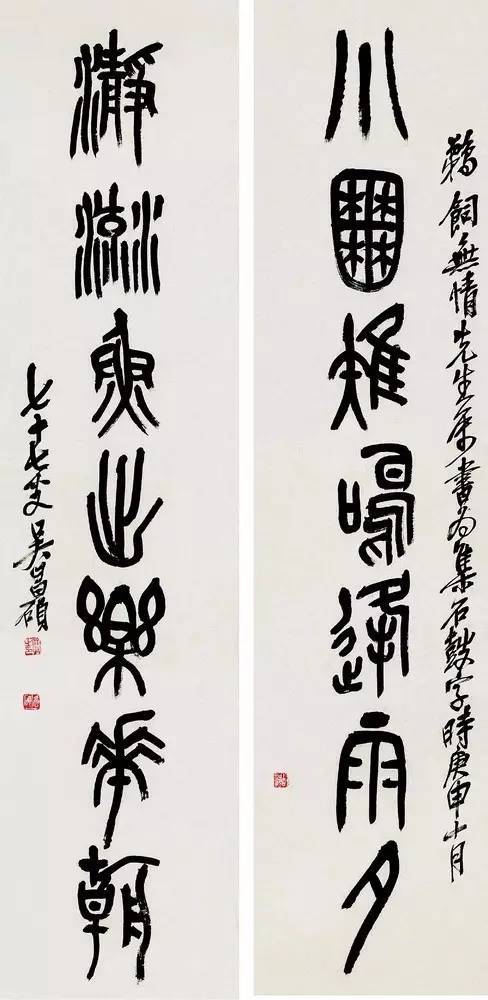 小囿雉鳴逢雨夕
鵜飼無情先生屬書為集石鼓字時庚申十月
瀞流魚出樂華朝
七十七叟吳昌碩